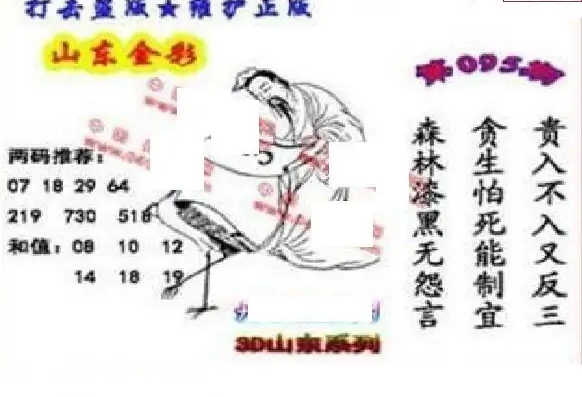 打击盗版★维护正版
山东金彩
095
两码推荐：
07 18 29 64
219 730 518
和值：08 10 12
14 18 19
3D山东系列
贵入不入又反三
贪生怕死能制宜
森林漆黑无怨言